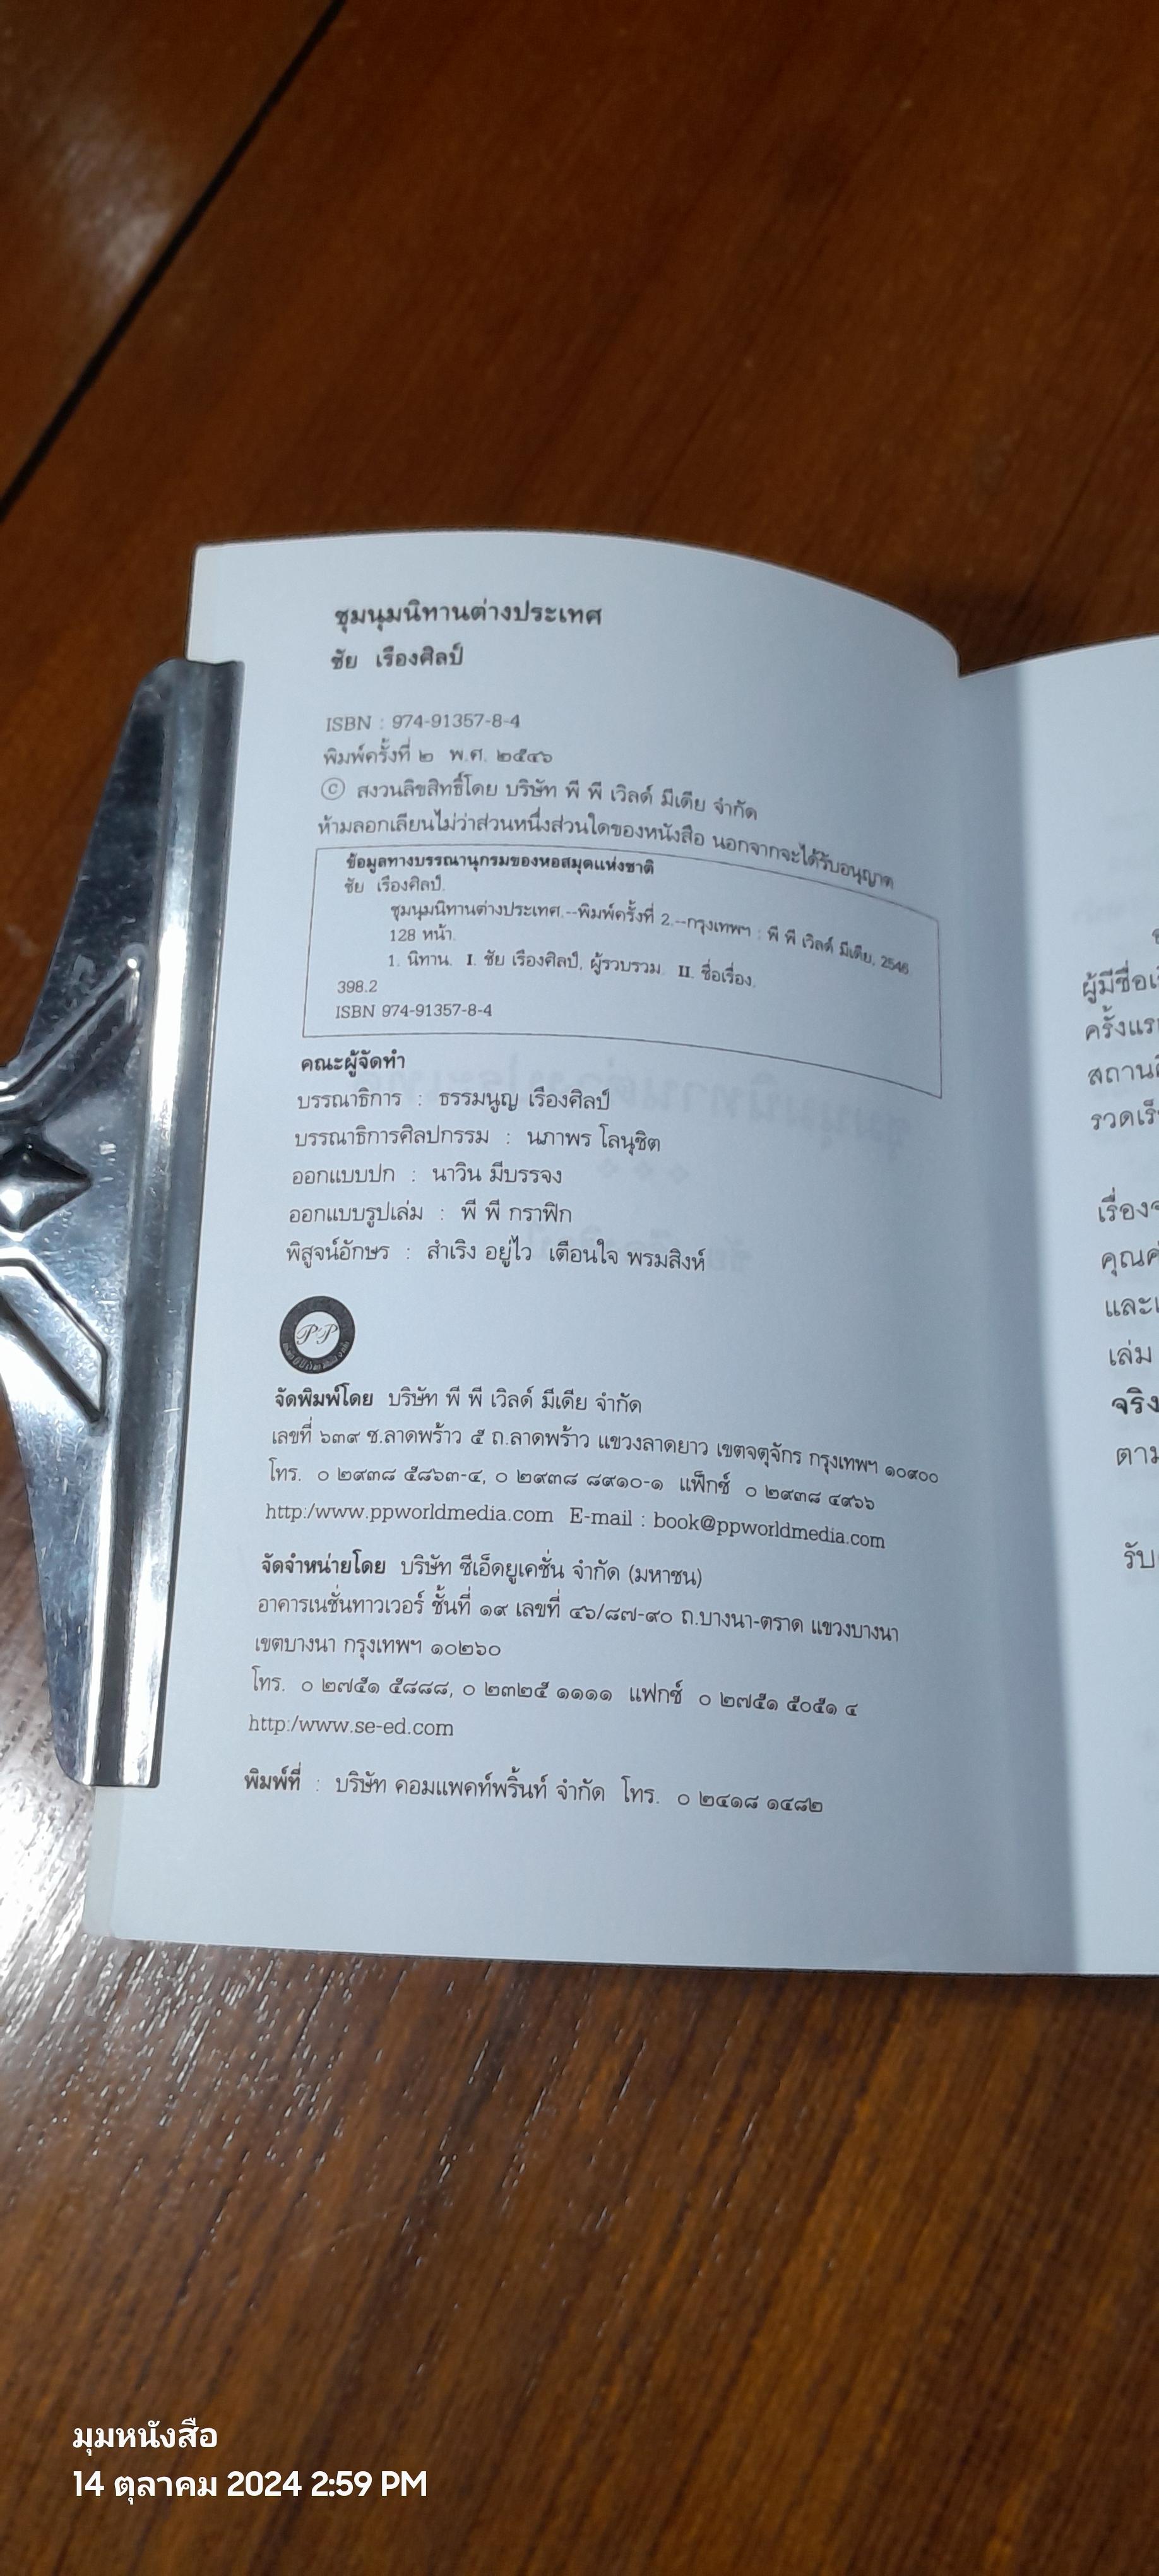 ชุมนุมนิทานต่างประเทศ
ชัย เรืองศิลป์
ISBN : 974-91357-8-4
พิมพ์ครั้งที่ ๒ พ.ศ. ๒๕๔๖
© สงวนลิขสิทธิ์โดย บริษัท พี พี เวิลด์ มีเดีย จำกัด
ห้ามลอกเลียนไม่ว่าส่วนหนึ่งส่วนใดของหนังสือ นอกจากจะได้รับอนุญาต
ข้อมูลทางบรรณานุกรมของหอสมุดแห่งชาติ
ชัย เรืองศิลป์.
ชุมนุมนิทานต่างประเทศ.--พิมพ์ครั้งที่ 2.--กรุงเทพฯ : พี พี เวิลด์ มีเดีย, 2546
128 หน้า.
1. นิทาน. I. ชัย เรืองศิลป์, ผู้รวบรวม. II. ชื่อเรื่อง.
398.2
ISBN 974-91357-8-4
คณะผู้จัดทำ
บรรณาธิการ : ธรรมนูญ เรืองศิลป์
บรรณาธิการศิลปกรรม : นภาพร โลนุชิต
ออกแบบปก : นาวิน มีบรรจง
ออกแบบรูปเล่ม : พี พี กราฟิก
พิสูจน์อักษร : สำเริง อยู่ไว เตือนใจ พรมสิงห์
PP
จัดพิมพ์โดย บริษัท พี พี เวิลด์ มีเดีย จำกัด
เลขที่ ๖๓๙ ซ.ลาดพร้าว ๕ ถ.ลาดพร้าว แขวงลาดยาว เขตจตุจักร กรุงเทพฯ ๑๐๙๐๐
โทร. ๐ ๒๙๓๘ ๕๘๖๓-๔, ๐ ๒๙๓๘ ๘๙๑๐-๑ แฟ็กซ์ ๐ ๒๙๓๘ ๔๙๖๖
http:/www.ppworldmedia.com E-mail : book@ppworldmedia.com
จัดจำหน่ายโดย บริษัท ซีเอ็ดยูเคชั่น จำกัด (มหาชน)
อาคารเนชั่นทาวเวอร์ ชั้นที่ ๑๙ เลขที่ ๔๖/๘๗-๙๐ ถ.บางนา-ตราด แขวงบางนา
เขตบางนา กรุงเทพฯ ๑๐๒๖๐
โทร. ๐ ๒๗๕๑ ๕๘๘๘, ๐ ๒๓๒๕ ๑๑๑๑ แฟกซ์ ๐ ๒๗๕๑ ๕๐๕๑ ๔
http:/www.se-ed.com
พิมพ์ที่ : บริษัท คอมแพคท์พริ้นท์ จำกัด โทร. ๐ ๒๔๑๘ ๑๔๘๒
ผู้มีชื่อเ
ครั้งแร
สถาน
รวดเร็
เรื่อง
คุณค่
และ
เล่ม
จริง
ตาม
รับ
มุมหนังสือ
14 ตุลาคม 2024 2:59 PM